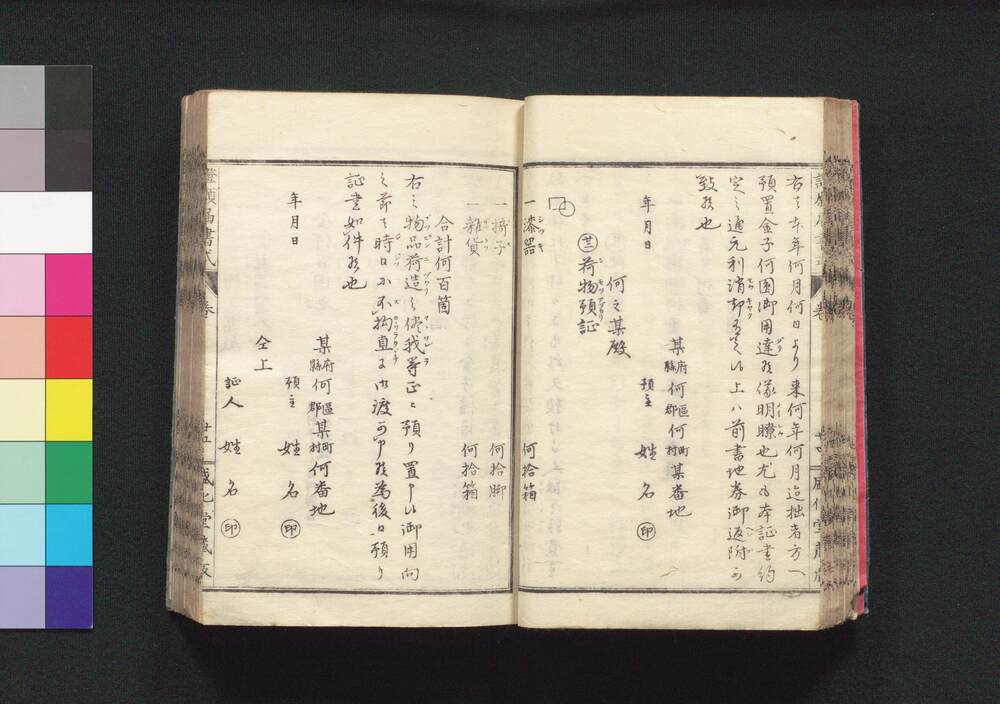 右之本年何月何日より来何年何月迄拙者方へ
預置金子何圓御用達候儀明瞭也尤も本証書約
定之通元利消却候上ハ前書地券御返附可
致候也
年月日
某府縣何區郡何町村某番地
預主 姓名 ㊞
何之某殿
荷物預証
一漆器 何拾箱
一掎子 何拾脚
一雜貨 何拾箱
合計何百箇
右之物品荷造之儘我等正ニ預り置申候御用向
之節は時日ニ不拘直ニ御渡可申候為後日預り
証書如件候也
年月日
某府縣何區郡某町村何番地
預主 姓名 ㊞
仝上
証人 姓名 ㊞
諸願届書式
卷
廿五
盛化堂藏版